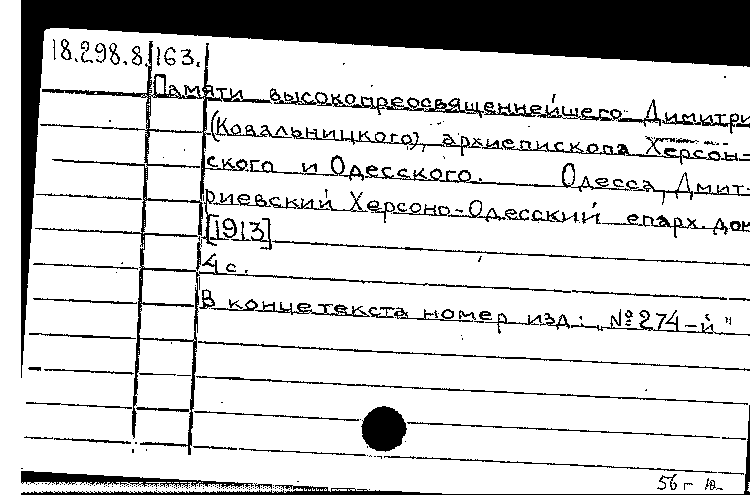 18.298.8.163.
Памяти высокопреосвященнейшего Димитри
(Ковальницкого), архиепископа Херсон-
ского и Одесского. Одесса, Дмит-
риевский Херсоно-Одесский епарх. дом
[1913]
4 с.
В конце текста номер изд.: „№274-й"
56-